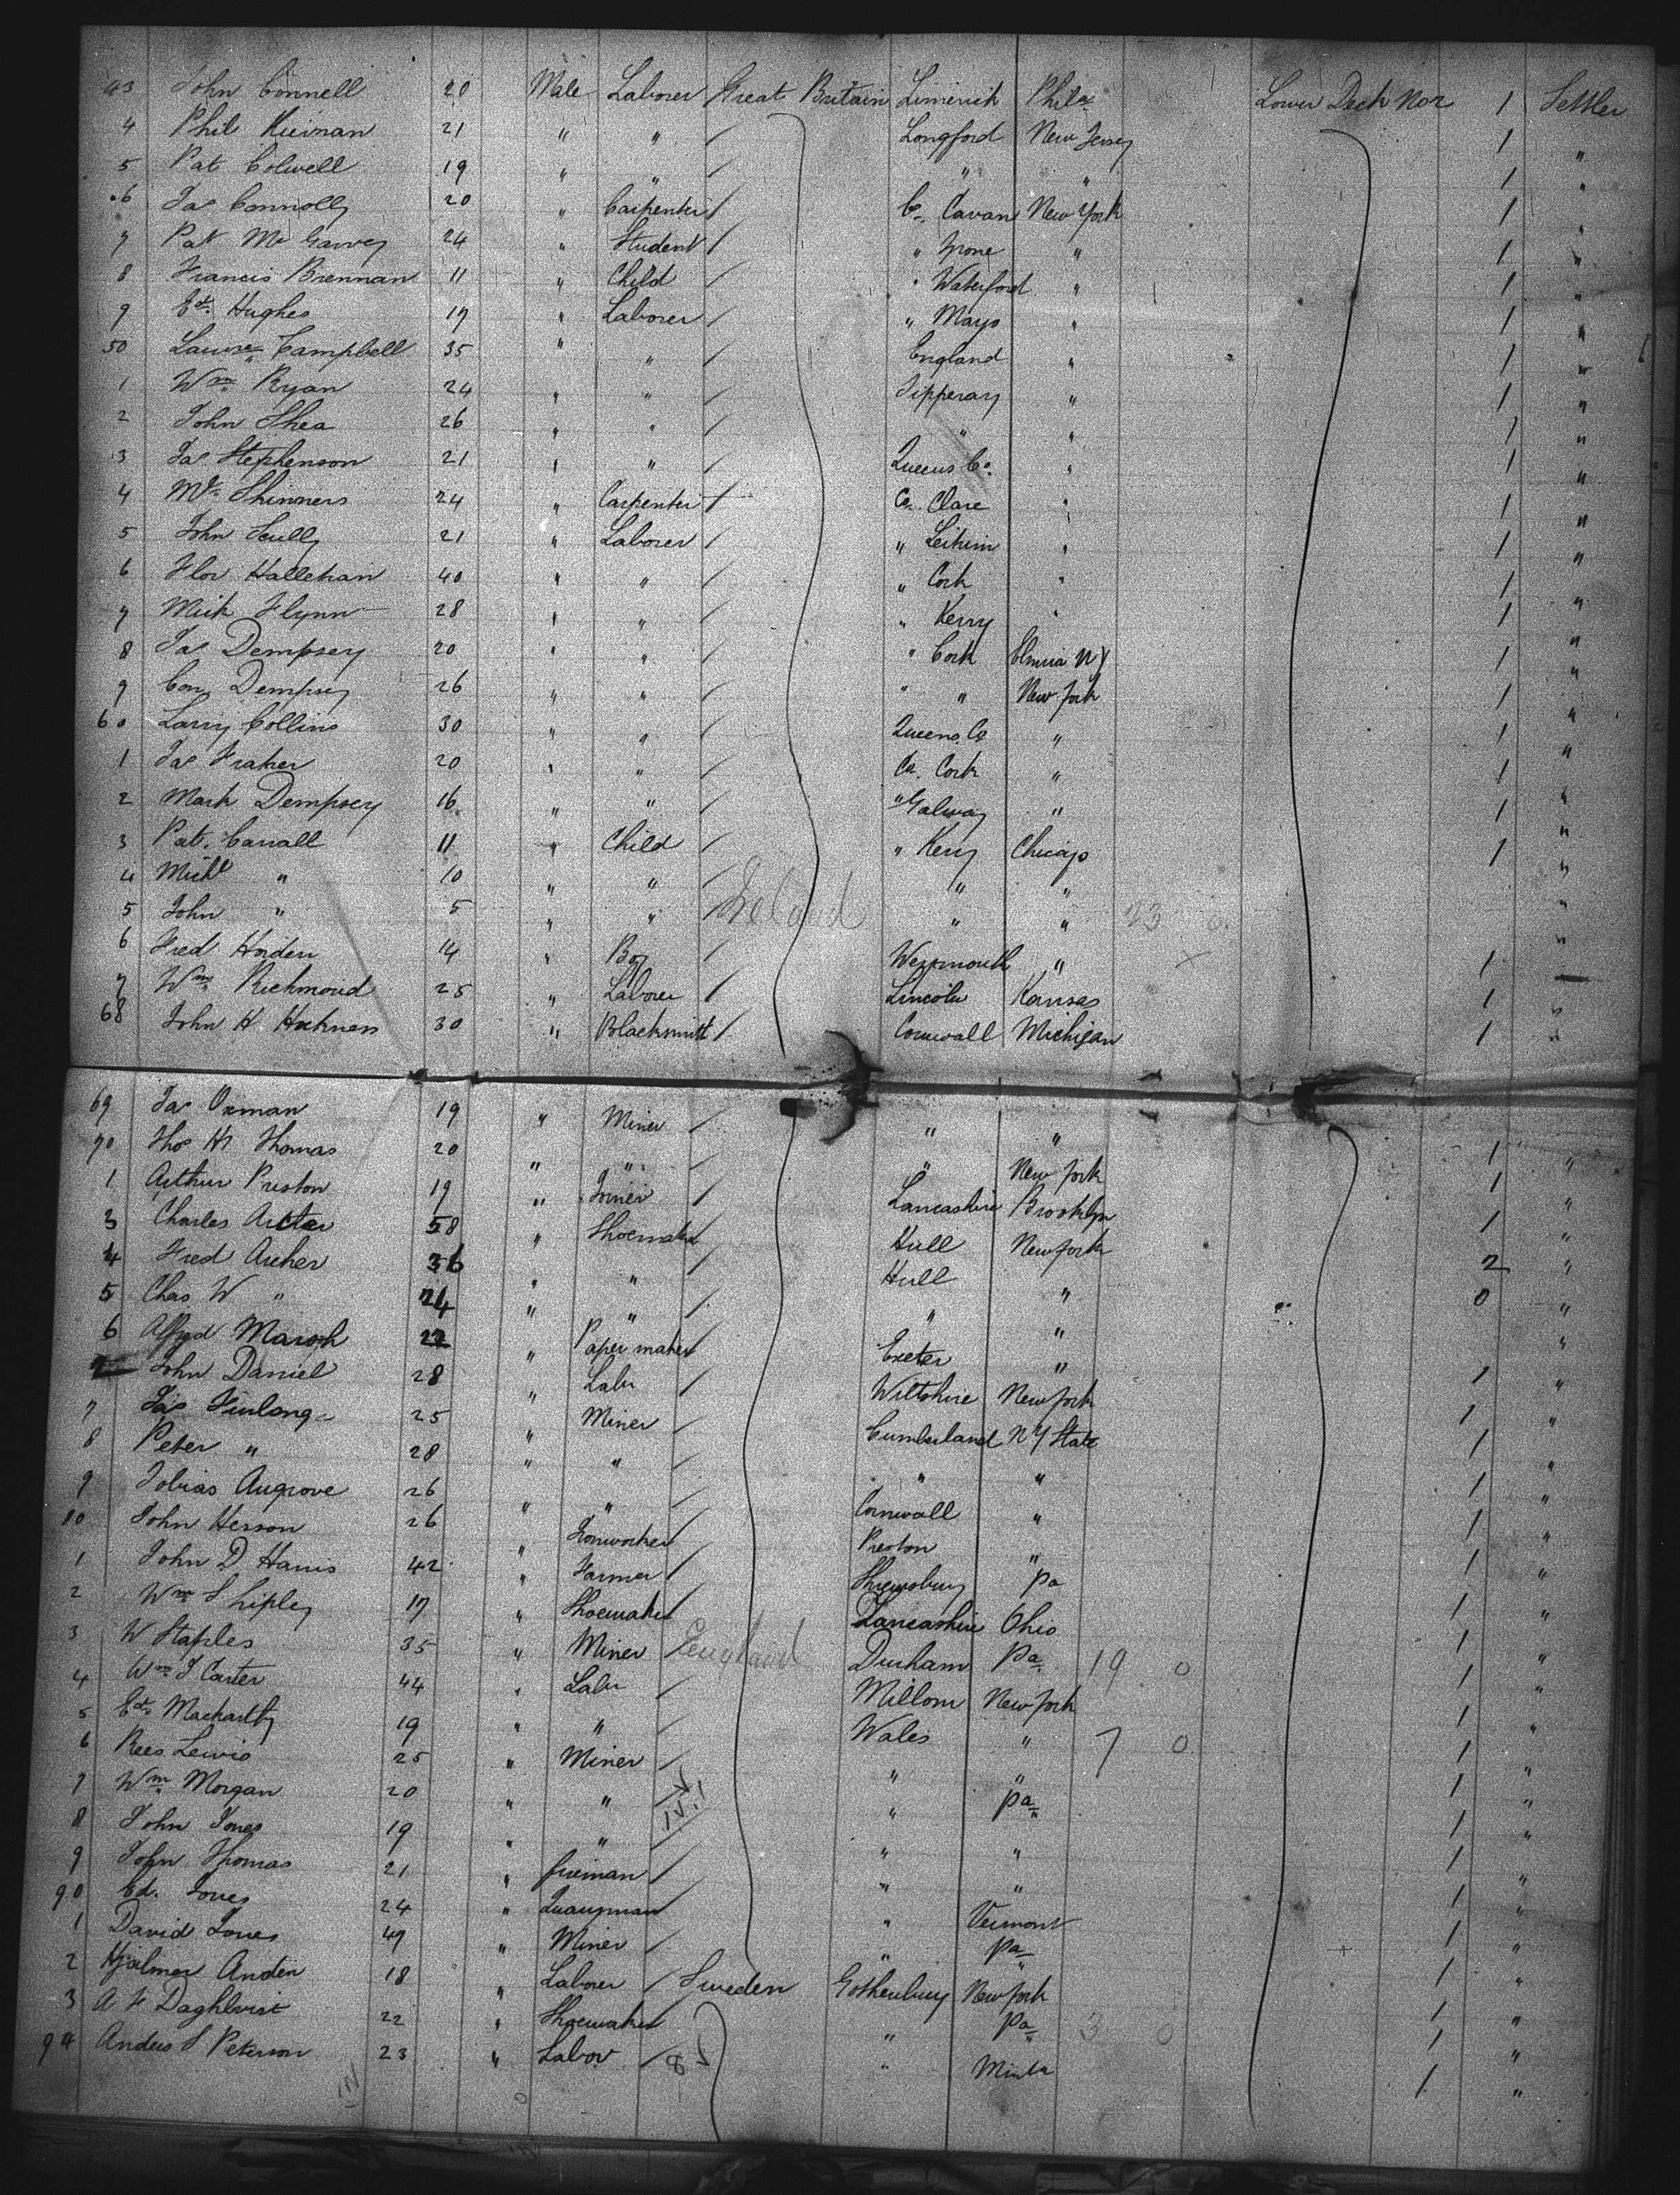 43 John Connell 20 Male Laborer Great Britain Limerick Phila Lower Deck No 2 1 Settler
4 Phil Kiernan 21 " " / Longford New Jersey 1 "
5 Pat Colwell 19 " " / " " 1 "
6 Jas Connolly 20 " Carpenter / Co. Cavan New York 1 "
7 Pat Mc Garvey 24 " Student / " Tyrone " 1 "
8 Francis Brennan 11 " Child / " Waterford " 1 "
9 Ed. Hughes 19 " Laborer / " Mayo " 1 "
50 Lawre Campbell 35 " " / England " 1 "
1 Wm Ryan 24 " " / Tipperary " 1 "
2 John Shea 26 " " / " " 1 "
3 Jas Stephenson 21 " " / Queens Co. " 1 "
4 Mt. Shinners 24 " Carpenter / Co. Clare " 1 "
5 John Scully 21 " Laborer / " Leitrim " 1 "
6 Flor Hallehan 40 " " / " Cork " 1 "
7 Mick Flynn 28 " " / " Kerry " 1 "
8 Jas Dempsey 20 " " / " Cork Elmira N Y 1 "
9 Con Dempsey 26 " " / " " New York 1 "
60 Larry Collins 30 " " / Queens Co " 1 "
1 Jas Fraher 20 " " / Co. Cork " 1 "
2 Mark Dempsey 16 " " / " Galway " 1 "
3 Pat. Carroll 11 " Child / " Kerry Chicago 1 "
4 Michl " 10 " " / " " "
5 John " 5 " " / Ireland " " 23 0 "
6 Fred Horden 14 " Boy / Weymouth " 1 "
7 Wm Richmond 25 " Laborer / Lincoln Kansas 1 "
68 John H Hockness 30 " Blacksmith / Cornwall Michigan 1 "
69 Jas Oxman 19 " Miner / " " 1 "
70 Thos Hy Thomas 20 " " / " New York 1 "
1 Arthur Preston 19 " Joiner / Lancashire Brooklyn 1 "
3 Charles Archer 58 " Shoemaker Hull New York 2 "
4 Fred Archer 36 " " / Hull " 0 "
5 Chas W " 24 " " / " " "
6 Alfred Marsh 22 " Paper maker / Exeter " 1 "
John Daniel 28 " Labr / Wiltshire New York 1 "
7 Jas Furlong 25 " Miner / Cumberland N Y State 1 "
8 Peter " 28 " " / " " 1 "
9 Tobias Angrove 26 " " / Cornwall " 1 "
10 John Hesson 26 " Ironworker / Preston " 1 "
1 John D. Harris 42 " Farmer / Shrewsbury Pa 1 "
2 Wm Shipley 17 " Shoemaker Lancashire Ohio 1 "
3 W Staples 35 " Miner / England Durham Pa 19 0 1 "
4 Wm J Carter 44 " Labr / Millom New York 1 "
5 Ed. 19 " " Wales " 7 0 1 "
6 Rees Lewis 25 " Miner / " " 1 "
7 Wm Morgan 20 " " / " Pa 1 "
8 John Jones 19 " " / " " 1 "
9 John Thomas 21 " fireman / " " 1 "
90 Ed. Jones 24 " Quarryman " Vermont 1 "
1 David Jones 49 " Miner / " Pa 1 "
2 Hjalmar Anden 18 " Laborer / Sweden Gothenburg New York 1 "
3 A F Daghlvist 22 " Shoemaker " Pa 3 0 1 "
94 Anders S Peterson 23 " Labor / 8 " Minta 1 "